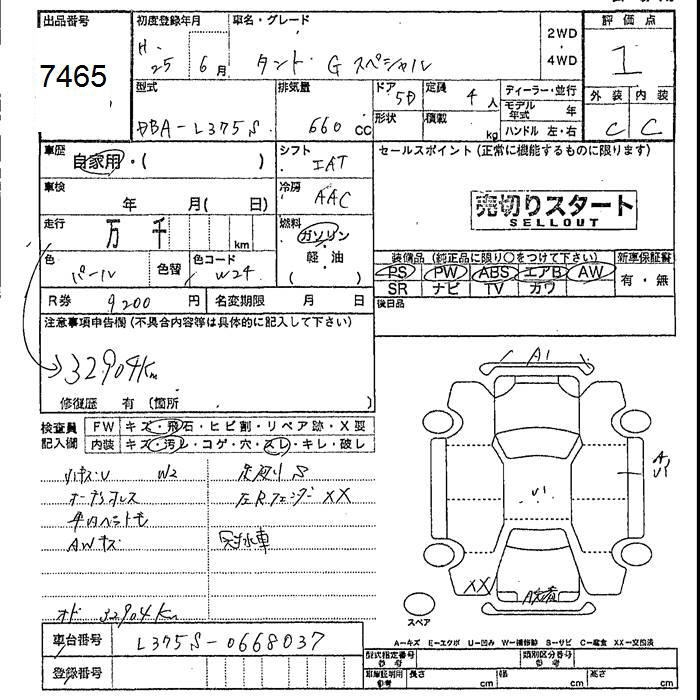 出品番号 初度登録年月 車名・グレード 2WD 評価点
7465 H. 25 6月 タント G スペシャル 4WD 1
型式 排気量 ドア 5D 定員 4人 ディーラー・並行 外装 内装
DBA-L375S 660 CC 形状 積載 kg モデル年式 年 C C
ハンドル 左・右
車歴 自家用・( ) シフト IAT セールスポイント (正常に機能するものに限ります)
車検 年 月( 日) 冷房 AAC 売切りスタート
SELLOUT
走行 万 千 km 燃料 ガソリン
軽・油
( )
色 パール 色替 色コード W24
装備品 (純正品に限り○をつけて下さい) 新車保証書
PS PW ABS エアB AW 有・無
SR ナビ TV カワ
R券 9200 円 名変期限 月 日 後日品
注意事項申告欄 (不具合内容等は具体的に記入して下さい)
32904Km
修復歴 有 (箇所 )
A1
検査員 FW キズ・飛石・ヒビ割・リペア跡・X要
記入欄 内装 キズ・汚レ・コゲ・穴・スレ・キレ・破レ
W2
XX
車内ペットモ
AWキズ 冠水車
A
U1
U1
XX
オド 32904Km
スペア
A-キズ E-エクボ U-凹み W-補修跡 S-サビ C-腐食 XX-交換済
車台番号 L375S-0668037
型式指定番号 参考 類別区分番号 参考
登録番号 車庫証明用 参考 長さ cm 幅 cm 高さ cm